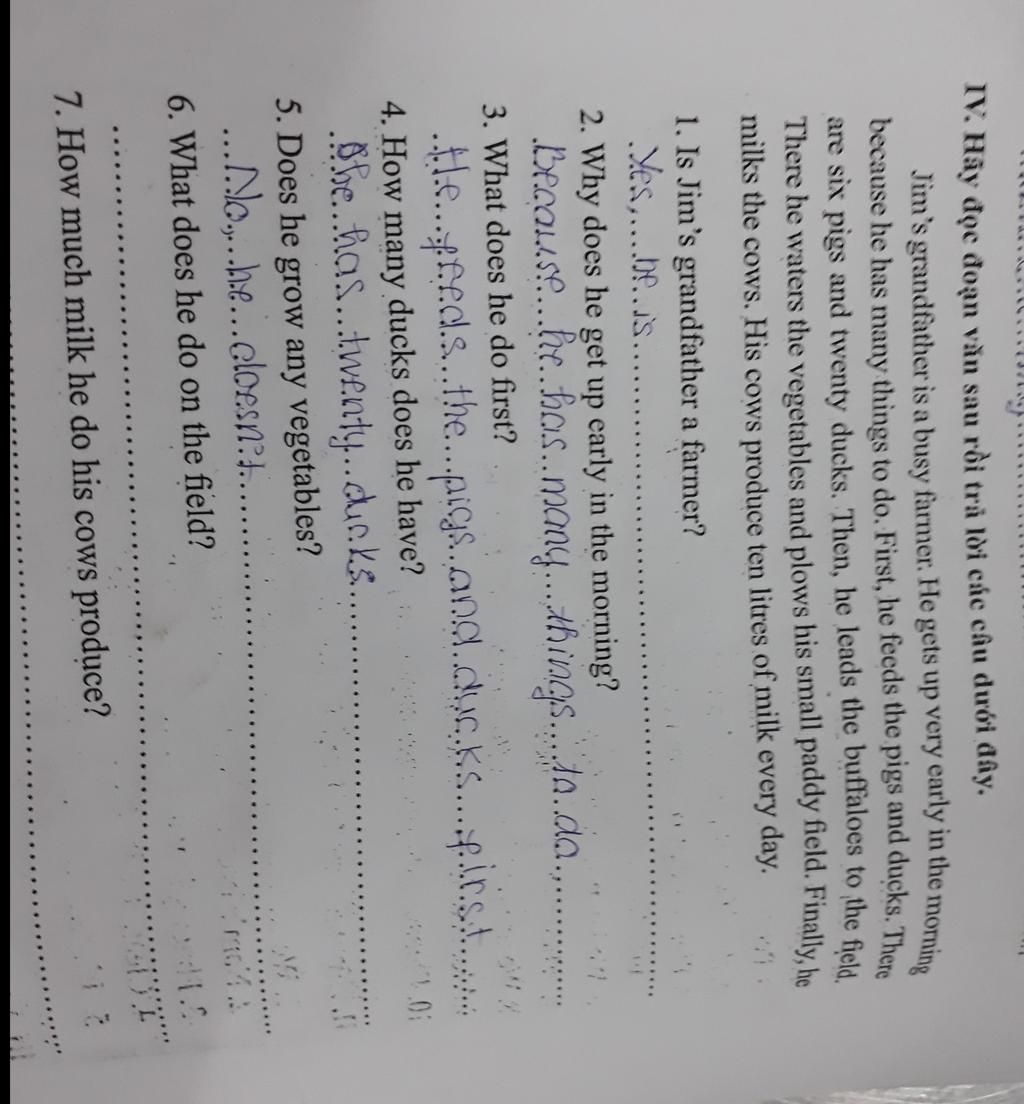 IV. Hãy đọc đoạn văn sau rồi trả lời các câu dưới đây.
Jim's grandfather is a busy farmer. He gets up very early in the morning
because he has many things to do. First, he feeds the pigs and ducks. There
are six pigs and twenty ducks. Then, he leads the buffaloes to the field.
There he waters the vegetables and plows his small paddy field. Finally, he
milks the cows. His cows produce ten litres of milk every day.
1. Is Jim's grandfather a farmer?
Yes, he is
2. Why does he get up early in the morning?
Because he has many things to do
3. What does he do first?
He feeds the pigs and ducks first
4. How many ducks does he have?
She has twenty ducks
5. Does he grow any vegetables?
No, he doesn't
6. What does he do on the field?
7. How much milk he do his cows produce?